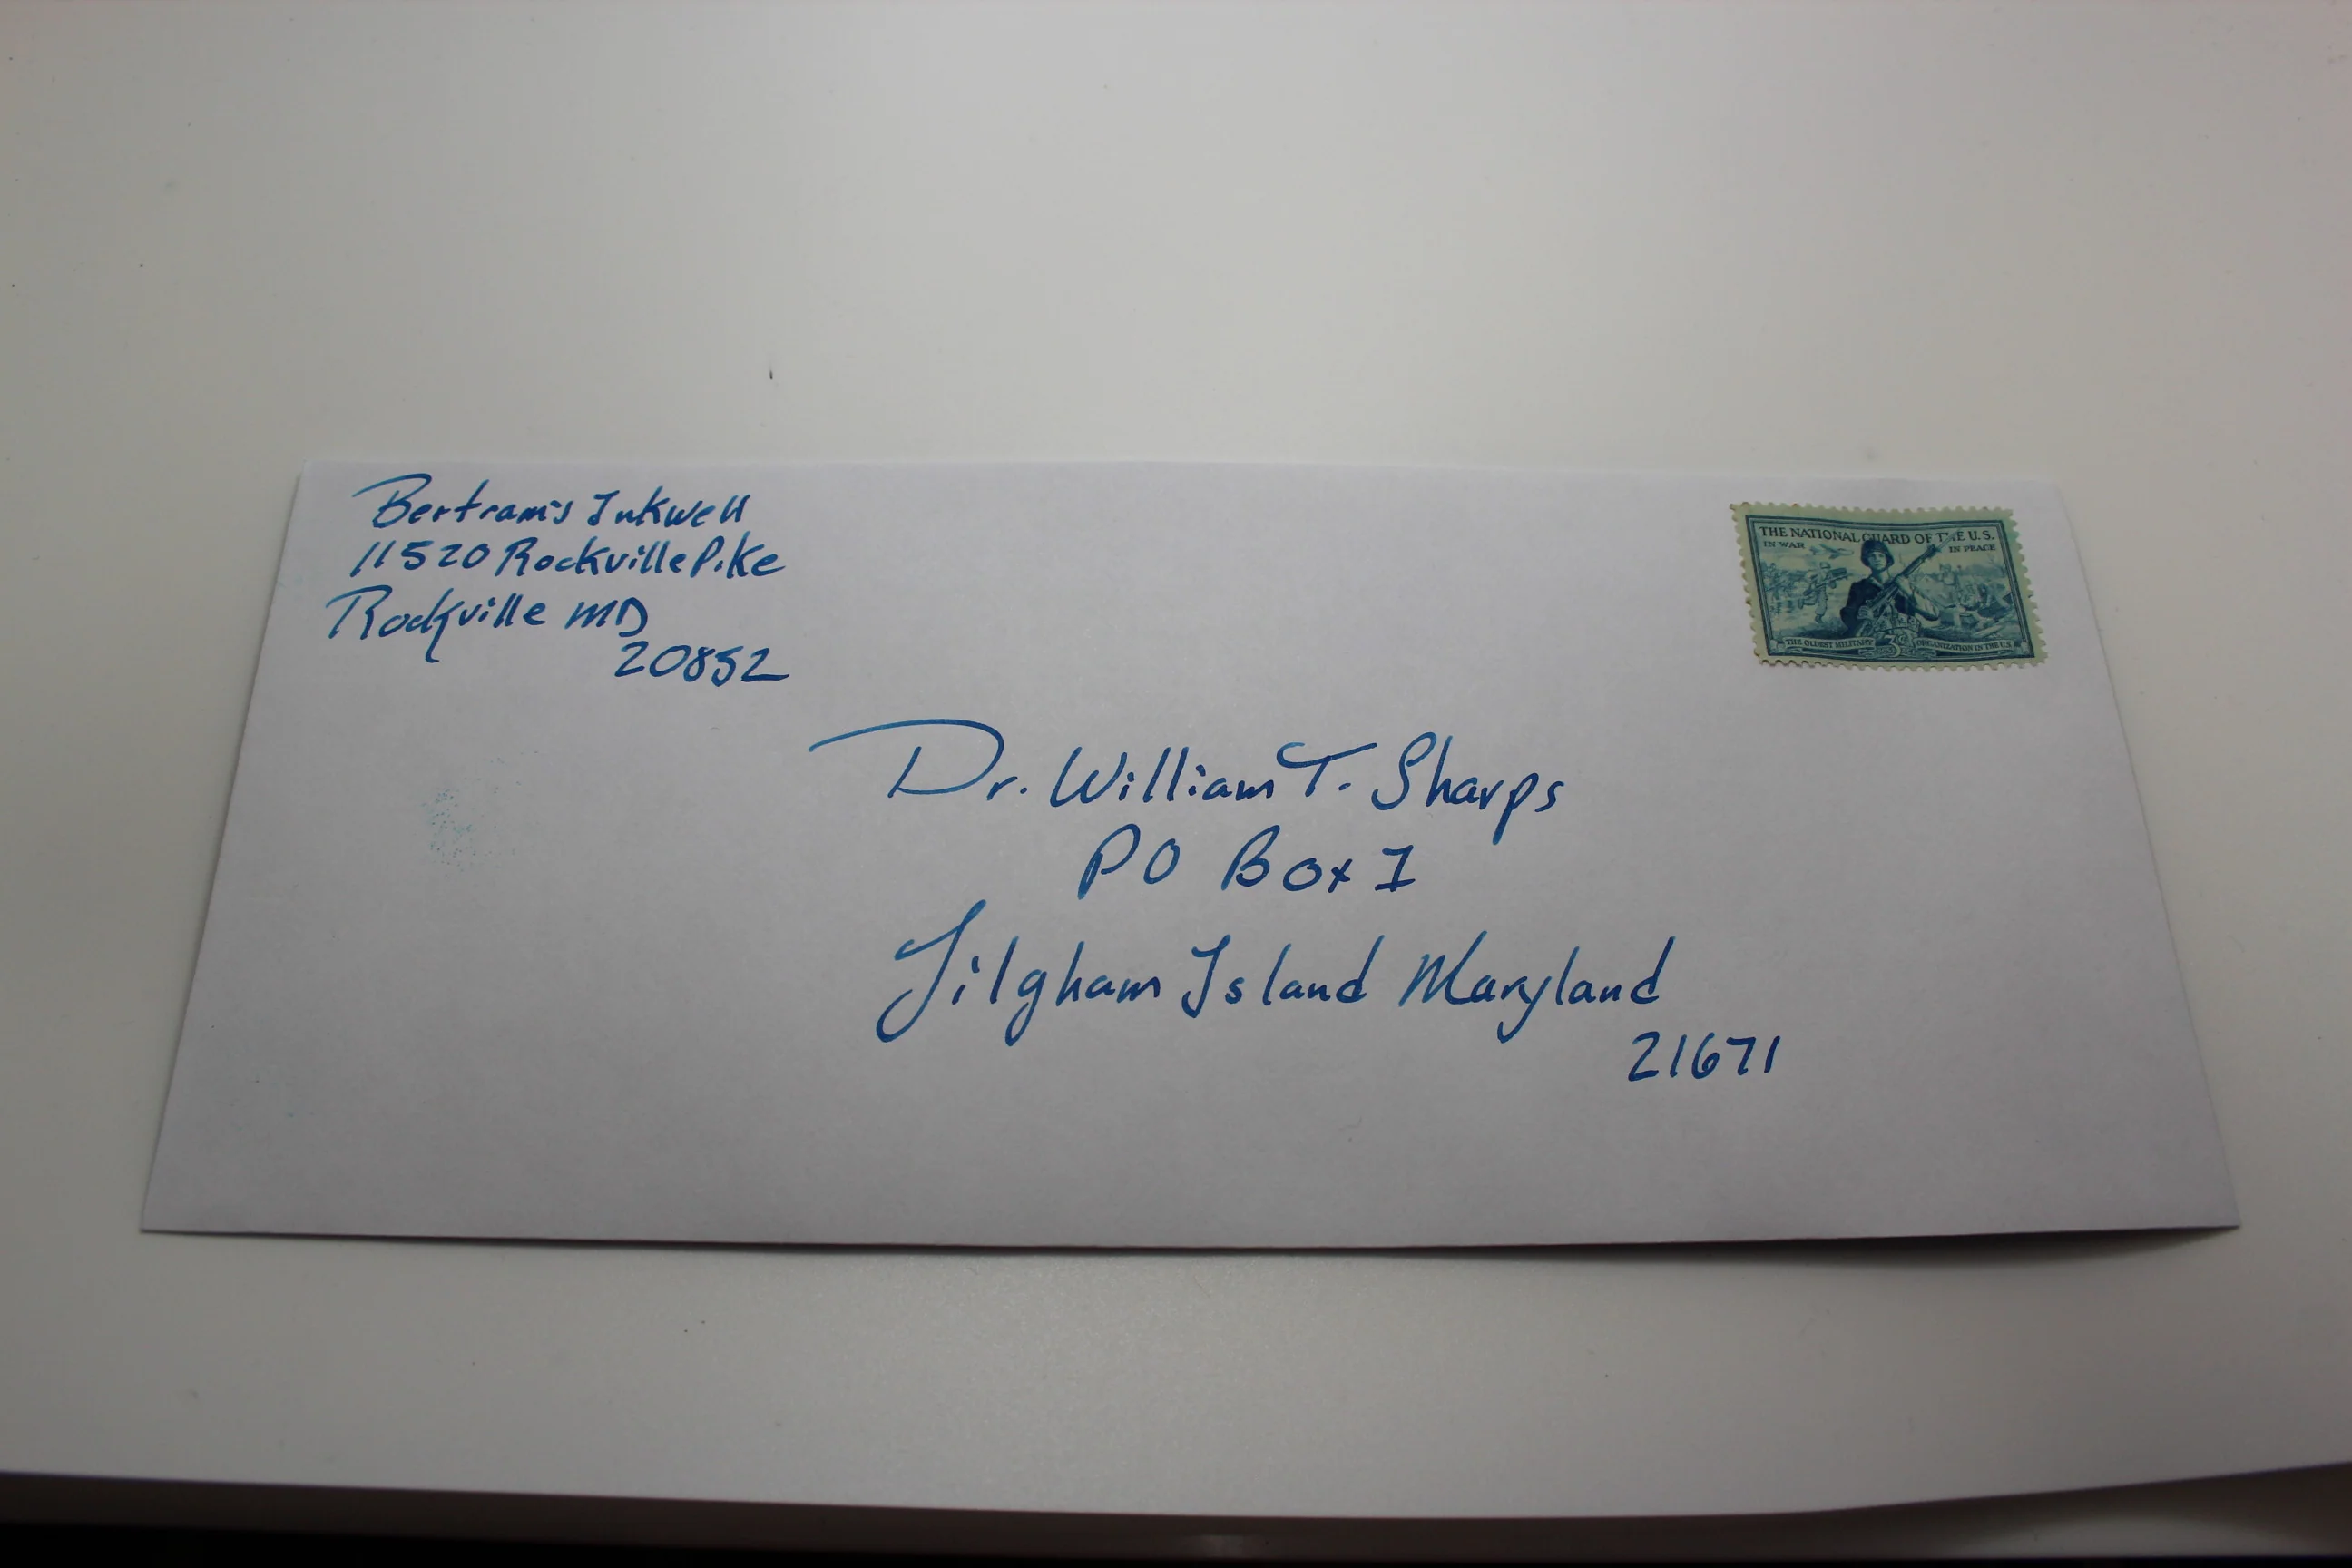 Bertram's Inkwell
11520 Rockville Pike
Rockville MD
20852
THE NATIONAL GUARD OF THE U.S.
IN WAR
IN PEACE
THE OLDEST MILITARY
3¢
ORGANIZATION IN THE U.S.
Dr. William T. Sharps
PO Box I
Tilgham Island Maryland
21671